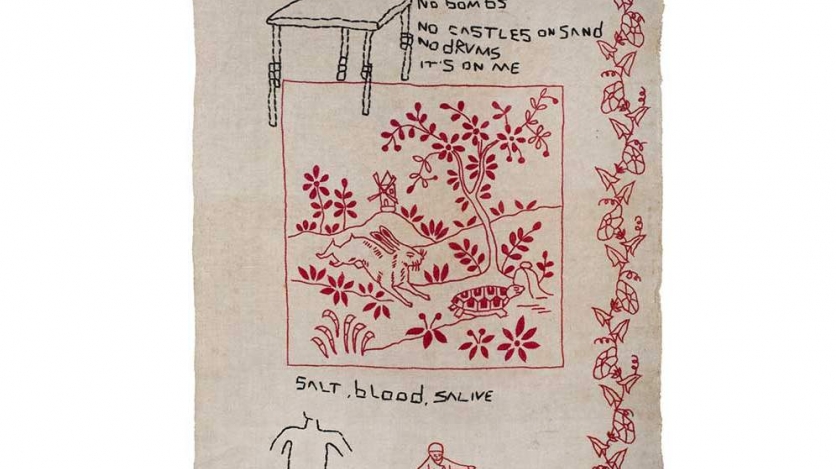 NO BOMBS
NO CASTLES ON SAND
NO dRUMS
IT'S ON ME
SALT, blood, SALIVE